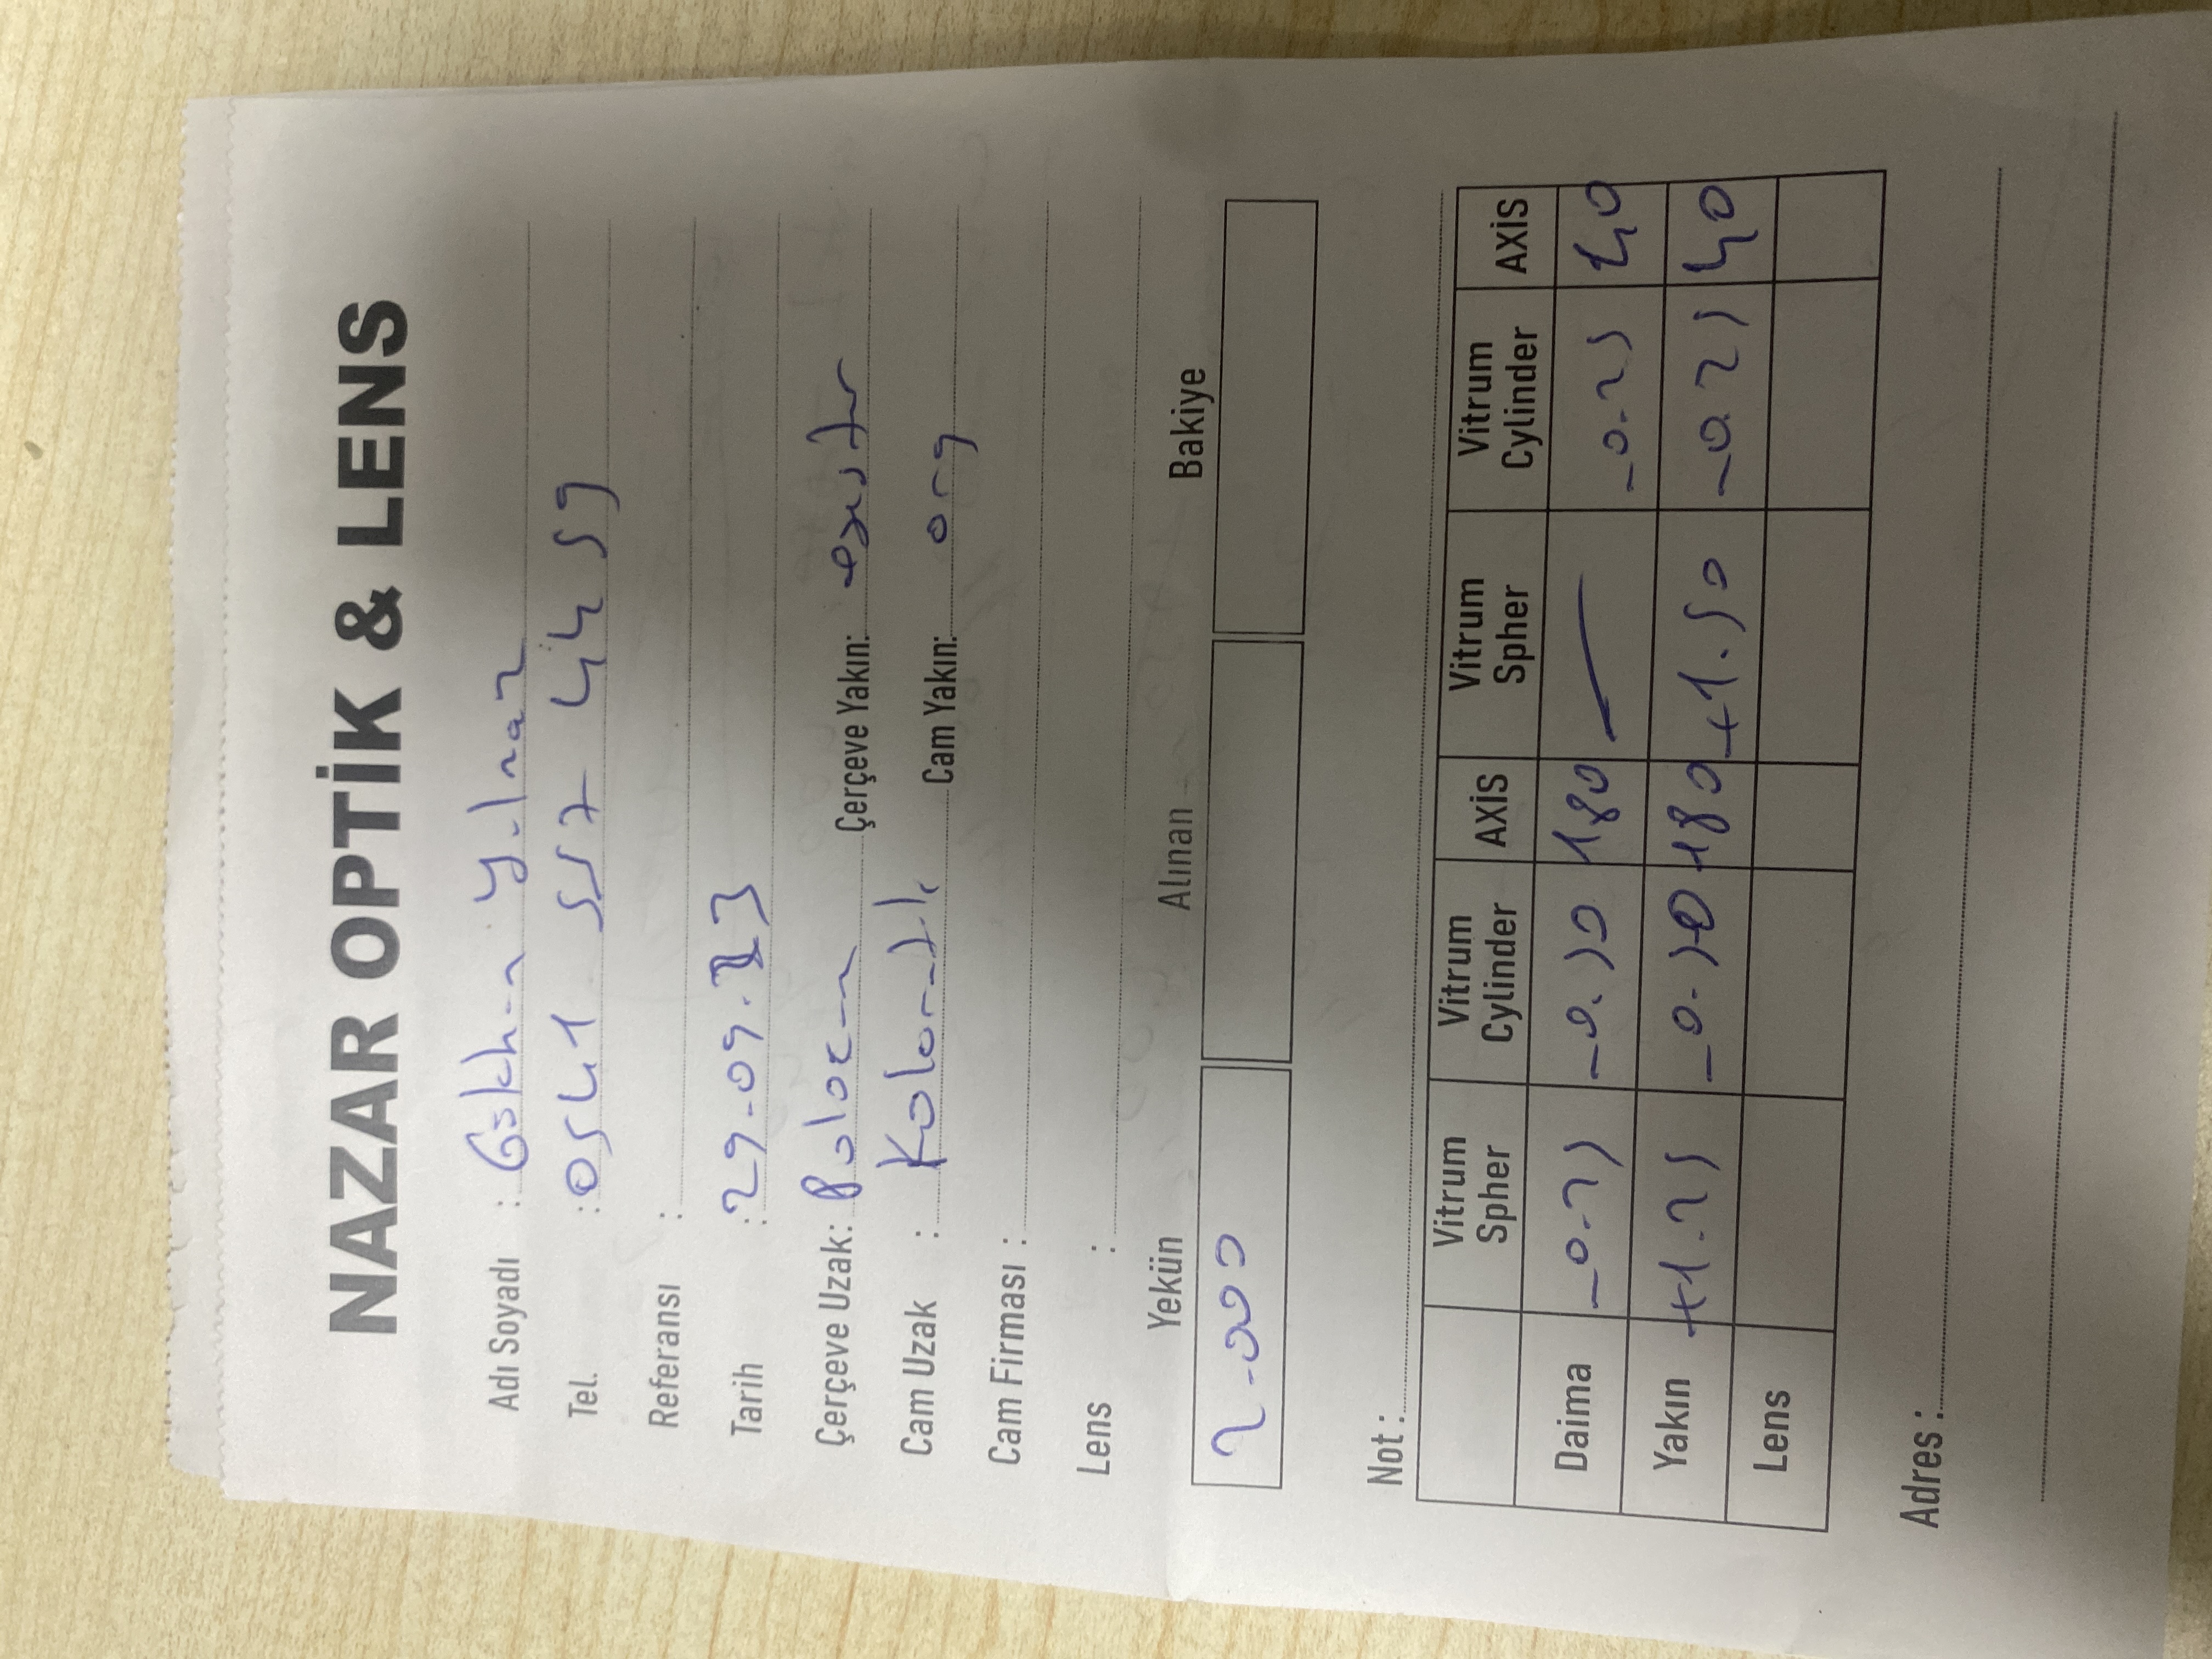 NAZAR OPTİK & LENS
Adı Soyadı : Gökhan Yılmaz
Tel. : 0541 557 44 59
Referansı :
Tarih : 29-09.23
Çerçeve Uzak: Çerçeve Yakın:
Cam Uzak : Kolormatik Cam Yakın: org
Cam Firması :
Lens :
Yekün Alınan Bakiye
2.000
Not :
Vitrum Spher Vitrum Cylinder AXİS Vitrum Spher Vitrum Cylinder AXİS
Daima -0.25 -0.50 180 — -0.25 40
Yakın +1.25 -0.50 180 +1.50 -0.25 40
Lens
Adres :